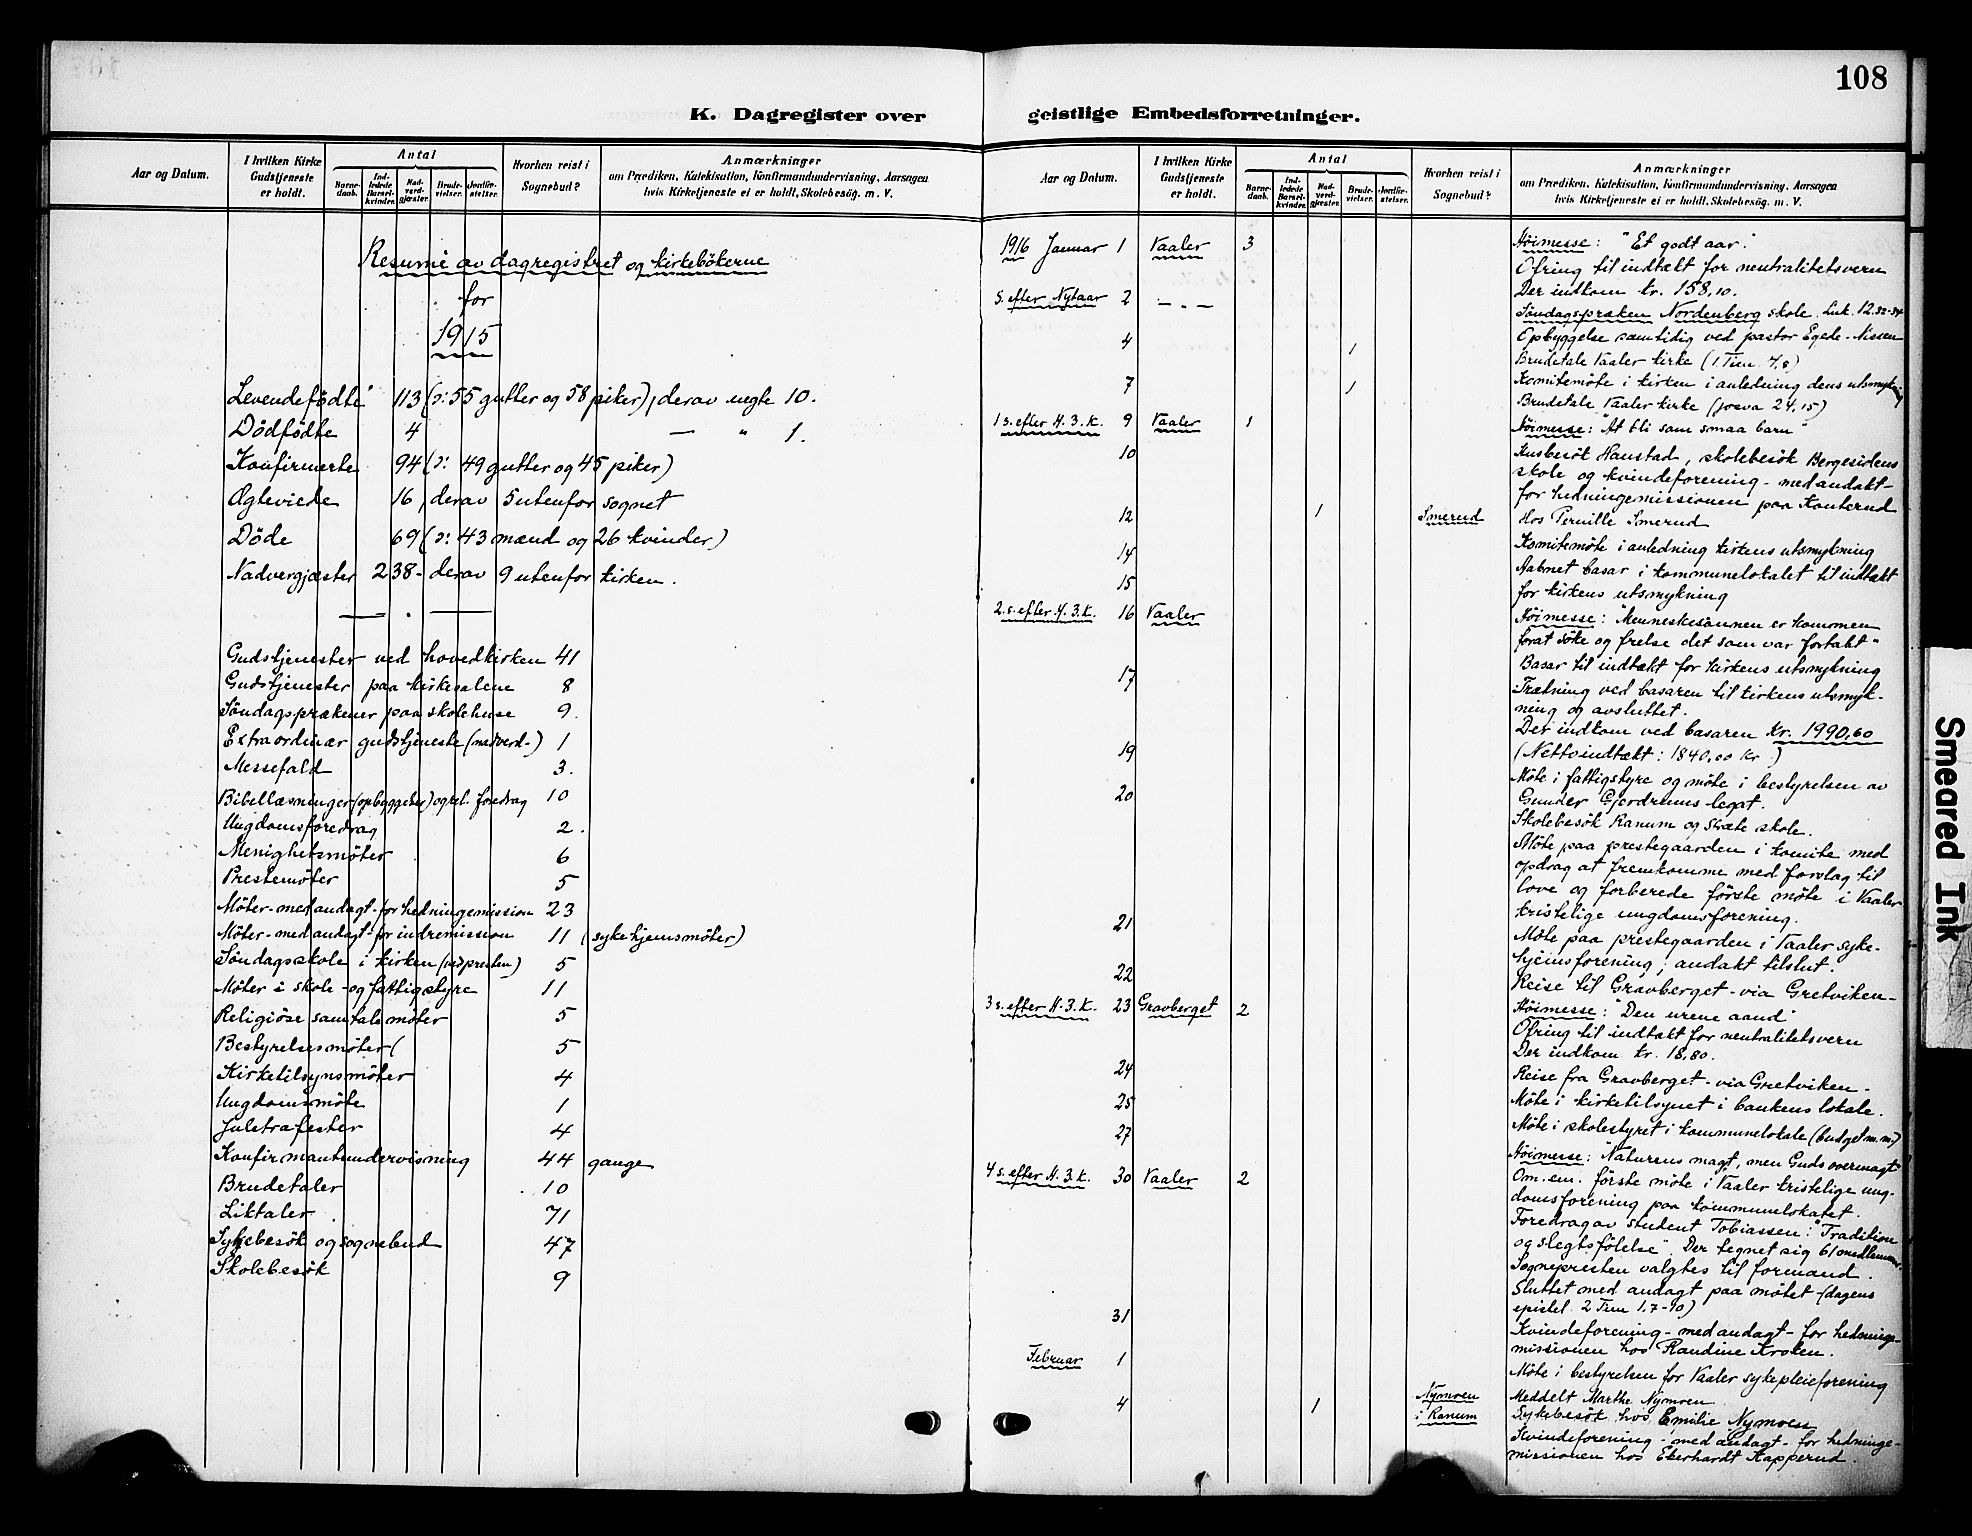 108
K. Dagregister over geistlige Embedsforretninger.
Aar og Datum.
I hvilken Kirke Gudstjeneste er holdt.
Antal
Barne-daab.
Ind-ledede Barsel-kvinder.
Nad-verd-gjæster.
Brude-vielser.
Jordfæ-stelser.
Hvorhen reist i Sognebud?
Anmærkninger
om Prædiken, Katekisation, Konfirmandundervisning, Aarsagen
hvis Kirketjeneste ei er holdt, Skolebesøg. m. V.
Resumé av dagregistret og kirkebökerne
for
1915
Levendefödte 113 (ɔ: 55 gutter og 58 piker), derav uegte 10.
Dödfödte 4 — " 1.
Konfirmerte 94 (ɔ: 49 gutter og 45 piker)
Ægteviede 16, derav 5 utenfor sognet
Döde 69 (ɔ: 43 mænd og 26 kvinder)
Nadvergjæster 238 - derav 9 utenfor kirken.
Gudstjenester ved hovedkirken 41
Gudstjenester paa kirkesalene 8
Söndagsprækener paa skolehuse 9.
Extraordinær gudstjeneste (nadverd-) 1
Messefald 3.
Bibellæsninger (opbyggelser) og rel. foredrag 10
Ungdomsforedrag 2.
Menighetsmöter 6
Prestemöter 5
Möter - med andagt - for hedningemission 23
Möter - med andagt - for indremission 11 (sykehjemsmöter)
Söndagsskole i kirken (ved presten) 5
Möter i skole - og fattigstyre 11
Religiöse samtalemöter 5
Bestyrelsesmöter ( 5
Kirketilsynsmöter 4
Ungdomsmöte 1
Juletræfester 4
Konfirmantundervisning 44 gange
Brudetaler 10
Liktaler 71
Sykebesök og sognebud 47
Skolebesök 9
Aar og Datum.
I hvilken Kirke Gudstjeneste er holdt.
Antal
Barne-daab.
Ind-ledede Barsel-kvinder.
Nad-verd-gjæster.
Brude-vielser.
Jordfæ-stelser.
Hvorhen reist i Sognebud?
Anmærkninger
om Prædiken, Katekisation, Konfirmandundervisning, Aarsagen
hvis Kirketjeneste ei er holdt, Skolebesøg. m. V.
1916 Januar 1 Vaaler 3 Höimesse: "Et godt aar."
Ofring til indtækt for neutralitetsvern
Der indkom kr. 158,10.
S. efter Nytaar 2 — " — Söndagspræken Nordenberg skole. Luk. 12.32-34
Opbyggelse samtidig ved pastor Egede-Nissen
4 1 Brudetale Vaaler kirke (1. Tim. 4,8)
Komitemöte i kirken i anledning dens utsmykning
7 1 Brudetale Vaaler kirke (Josva 24,15)
1 s. efter H. 3. K. 9 Vaaler 1 Höimesse: "At bli som smaa barn"
10 Husbesök Haustad, skolebesök Bergesidens
skole og kvindeforening - med andakt -
for hedningemissionen paa Konterud
12 1 Smerud Hos Pernille Smerud
14 Komitemöte i anledning kirkens utsmykning
15 Aabnet basar i kommunelokalet til indtækt
for kirkens utsmykning
2. s. efter H. 3. K. 16 Vaaler Höimesse: "Menneskesönnen er kommen
forat söke og frelse det som var fortakt"
Basar til indtækt for kirkens utsmykning
17 Trætning ved basaren til kirkens utsmyk-
ning og avsluttet.
Der indkom ved basaren kr. 1990,60
(Nettoindtækt: 1840,00 kr)
19 Möte i fattigstyre og möte i bestyrelsen av
Gunder Gjerdrums legat.
20 Skolebesök Ranum og Stræte skole.
Möte paa prestegaarden i komite med
opdrag at fremkomme med forslag til
love og forberede förste möte i Vaaler
kristelige ungdomsforening.
21 Möte paa prestegaarden i Vaaler syke-
hjemsforening; andakt tilslut.
22 Reise til Gravberget - via Gretviken -
3 s. efter H. 3. K. 23 Gravberget 2 Höimesse: "Den urene aand"
Ofring til indtækt for neutralitetsvern
Der indkom kr. 18,80.
24 Reise fra Gravberget - via Gretviken -
25 Möte i kirketilsynet i bankens lokale.
27 Möte i skolestyret i kommunelokale (budget m.m.)
4 s. efter H. 3. K. 30 Vaaler 2 Höimesse: "Naturens magt, men Guds overmagt"
Om. em. förste möte i Vaaler kristelige ung-
domsforening paa kommunelokatet.
Foredrag av student Tobiassen: "Tradition
og slegtsfölelse". Der tegnet sig 61 medlemmer.
Sognepresten valgtes til formand.
Sluttet med andagt paa mötet - (dagens
epistel 2 Tim 1.7-10)
31 Kvindeforening - med andagt - for hedninge-
missionen hos Randine Kroken.
Februar 1 Möte i bestyrelsen for Vaaler sykepleieforening
4 1 Nymoen i Ranum Meddelt Marthe Nymoen
Sykebesök hos Emilie Nymoen
Kvindeforening - med andagt - for hedninge-
missionen hos Eberhardt Kapperud.
Smeared Ink